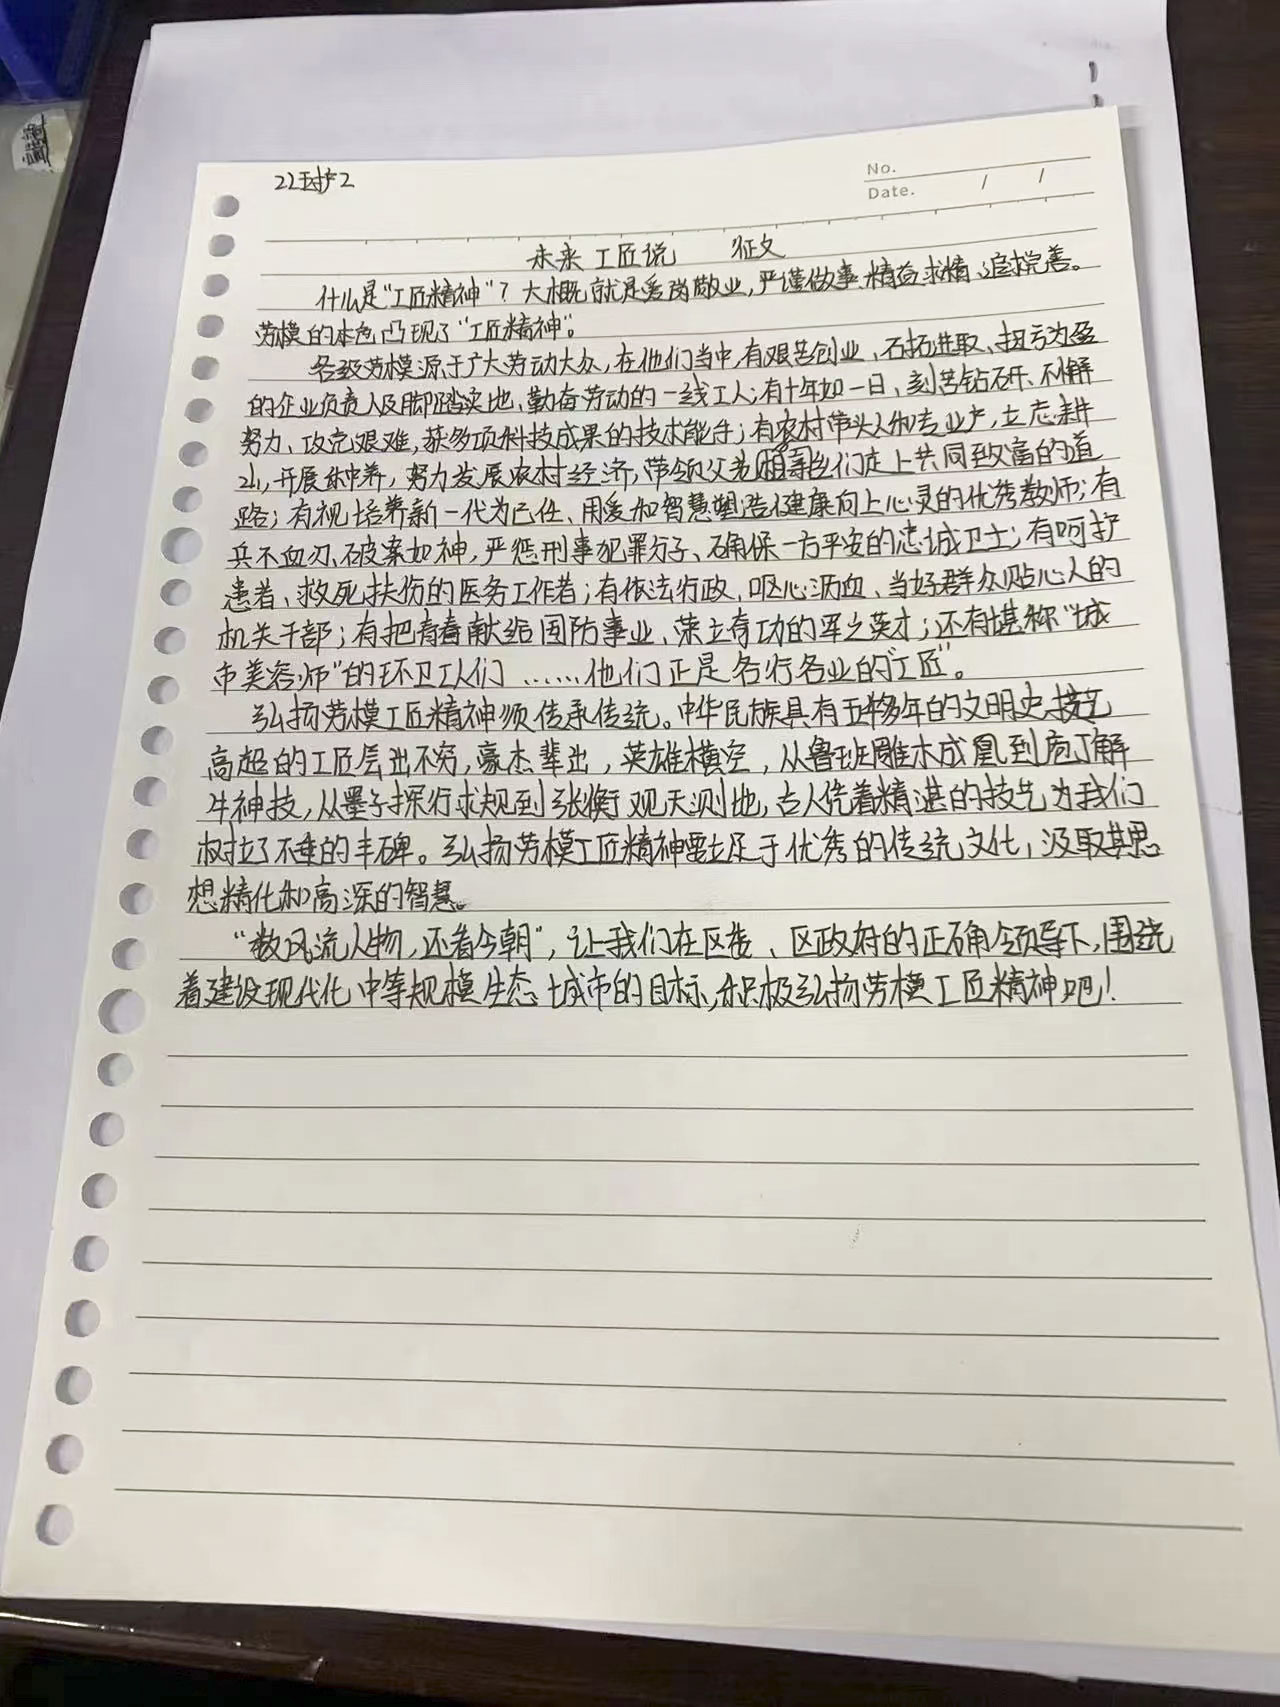 22护2
No.
Date. / /
未来工匠说 征文
什么是“工匠精神”？大概就是爱岗敬业,严谨做事、精益求精、追求完善。
劳模的本色凸现了“工匠精神”。
各级劳模源于广大劳动大众,在他们当中,有艰苦创业、开拓进取、扭亏为盈
的企业负责人及脚踏实地、勤奋劳动的一线工人;有十年如一日、刻苦钻研、不懈
努力、攻克艰难,获多项科技成果的技术能手;有农村带头人和专业户,立志耕
山,开展种养,努力发展农村经济,带领父老们走上共同致富的道
路;有视培养新一代为己任、用爱和智慧塑造健康向上心灵的优秀教师;有
兵不血刃、破案如神,严惩刑事犯罪分子、确保一方平安的忠诚卫士;有呵护
患者、救死扶伤的医务工作者;有依法行政、呕心沥血、当好群众贴心人的
机关干部;有把青春献给国防事业、荣立奇功的军之英才;还有堪称“城
市美容师”的环卫工人们……他们正是各行各业的“工匠”。
弘扬劳模工匠精神须传承传统。中华民族具有五千多年的文明史,技艺
高超的工匠层出不穷,豪杰辈出,英雄横空,从鲁班雕木成凰到庖丁解
牛神技,从墨子探行求规到张衡观天测地,古人凭着精湛的技艺为我们
树立了不垂的丰碑。弘扬劳模工匠精神要立足于优秀的传统文化,汲取其思
想精化和高深的智慧。
“数风流人物,还看今朝”,让我们在区委、区政府的正确领导下,围绕
着建设现代化中等规模生态城市的目标,积极弘扬劳模工匠精神吧!